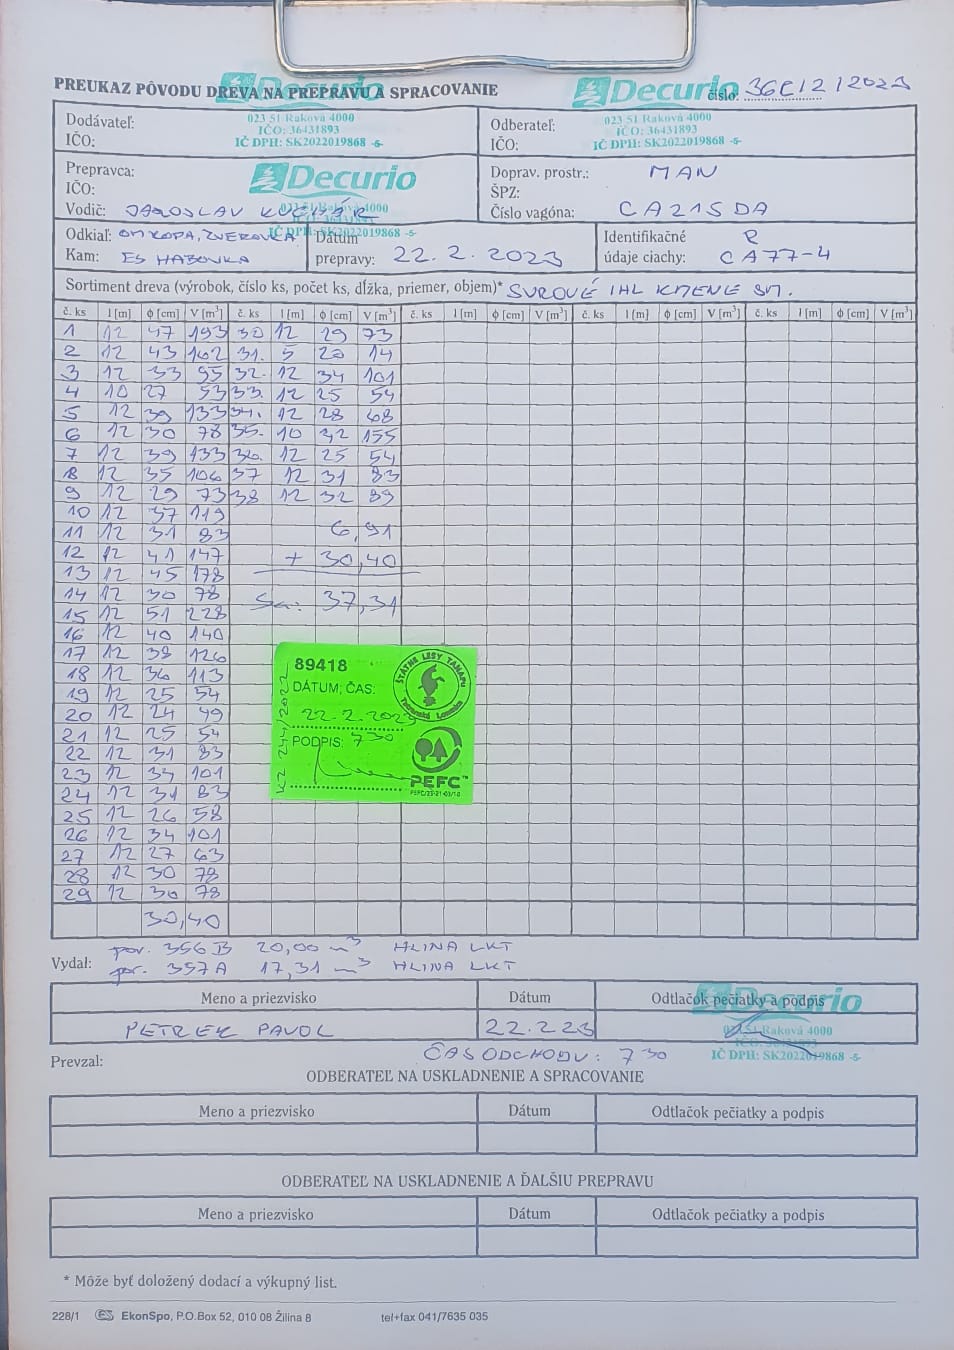 PREUKAZ PÔVODU DREVA NA PREPRAVU A SPRACOVANIE
Decurio
Decurio
číslo: 36C/2/2023
Dodávateľ:
IČO:
023 51 Raková 4000
IČO: 36431893
IČ DPH: SK2022019868 -5-
Odberateľ:
IČO:
023 51 Raková 4000
IČO: 36431893
IČ DPH: SK2022019868 -5-
Prepravca:
IČO:
Vodič: JAROSLAV
Decurio
023 51 Raková 4000
IČ DPH: SK2022019868 -5-
Doprav. prostr.: MAN
ŠPZ:
Číslo vagóna: CA215DA
Odkiaľ: ZVEROVKA
Kam: ES HABOVKA
Dátum
prepravy: 22.2.2023
Identifikačné R
údaje ciachy: CA77-4
Sortiment dreva (výrobok, číslo ks, počet ks, dĺžka, priemer, objem)* SUROVÉ IHL KMENE SM.
č. ks l [m] ϕ [cm] V [m³] č. ks l [m] ϕ [cm] V [m³] č. ks l [m] ϕ [cm] V [m³] č. ks l [m] ϕ [cm] V [m³] č. ks l [m] ϕ [cm] V [m³]
1 12 47 193 30 12 29 73
2 12 43 162 31. 5 20 14
3 12 33 95 32. 12 34 101
4 10 27 53 33. 12 25 54
5 12 39 133 34. 12 28 68
6 12 30 78 35. 10 155
7 12 39 133 36. 12 25 54
8 12 35 106 37 12 31 83
9 12 29 73 38 12 32 89
10 12 37 119
11 12 31 83 6,91
12 12 41 147 + 30,40
13 12 45 178
14 12 30 78 Sa: 37,31
15 12 51 228
16 12 40 140
17 12 38 126
18 12 36 113
19 12 25 54
20 12 24 49
21 12 25 54
22 12 31 83
23 12 34 101
24 12 31 83
25 12 26 58
26 12 34 101
27 12 27 63
28 12 30 78
29 12 30 78
30,40
89418
DÁTUM, ČAS:
22.2.2023
PODPIS: 730
ŠTÁTNE LESY TANAPU
Tatranská Lomnica
PEFC™
VZ 244/2022
por. 356 B 20,00 m³ HLINA LKT
Vydal: por. 357A 17,31 m³ HLINA LKT
Meno a priezvisko Dátum Odtlačok pečiatky a podpis
PETREK PAVOL 22.2.23
Decurio
023 51 Raková 4000
IČ DPH: SK2022019868 -5-
Prevzal: ČAS ODCHODU: 730
ODBERATEĽ NA USKLADNENIE A SPRACOVANIE
Meno a priezvisko Dátum Odtlačok pečiatky a podpis
ODBERATEĽ NA USKLADNENIE A ĎALŠIU PREPRAVU
Meno a priezvisko Dátum Odtlačok pečiatky a podpis
* Môže byť doložený dodací a výkupný list.
228/1 ES EkonSpo, P.O.Box 52, 010 08 Žilina 8 tel+fax 041/7635 035